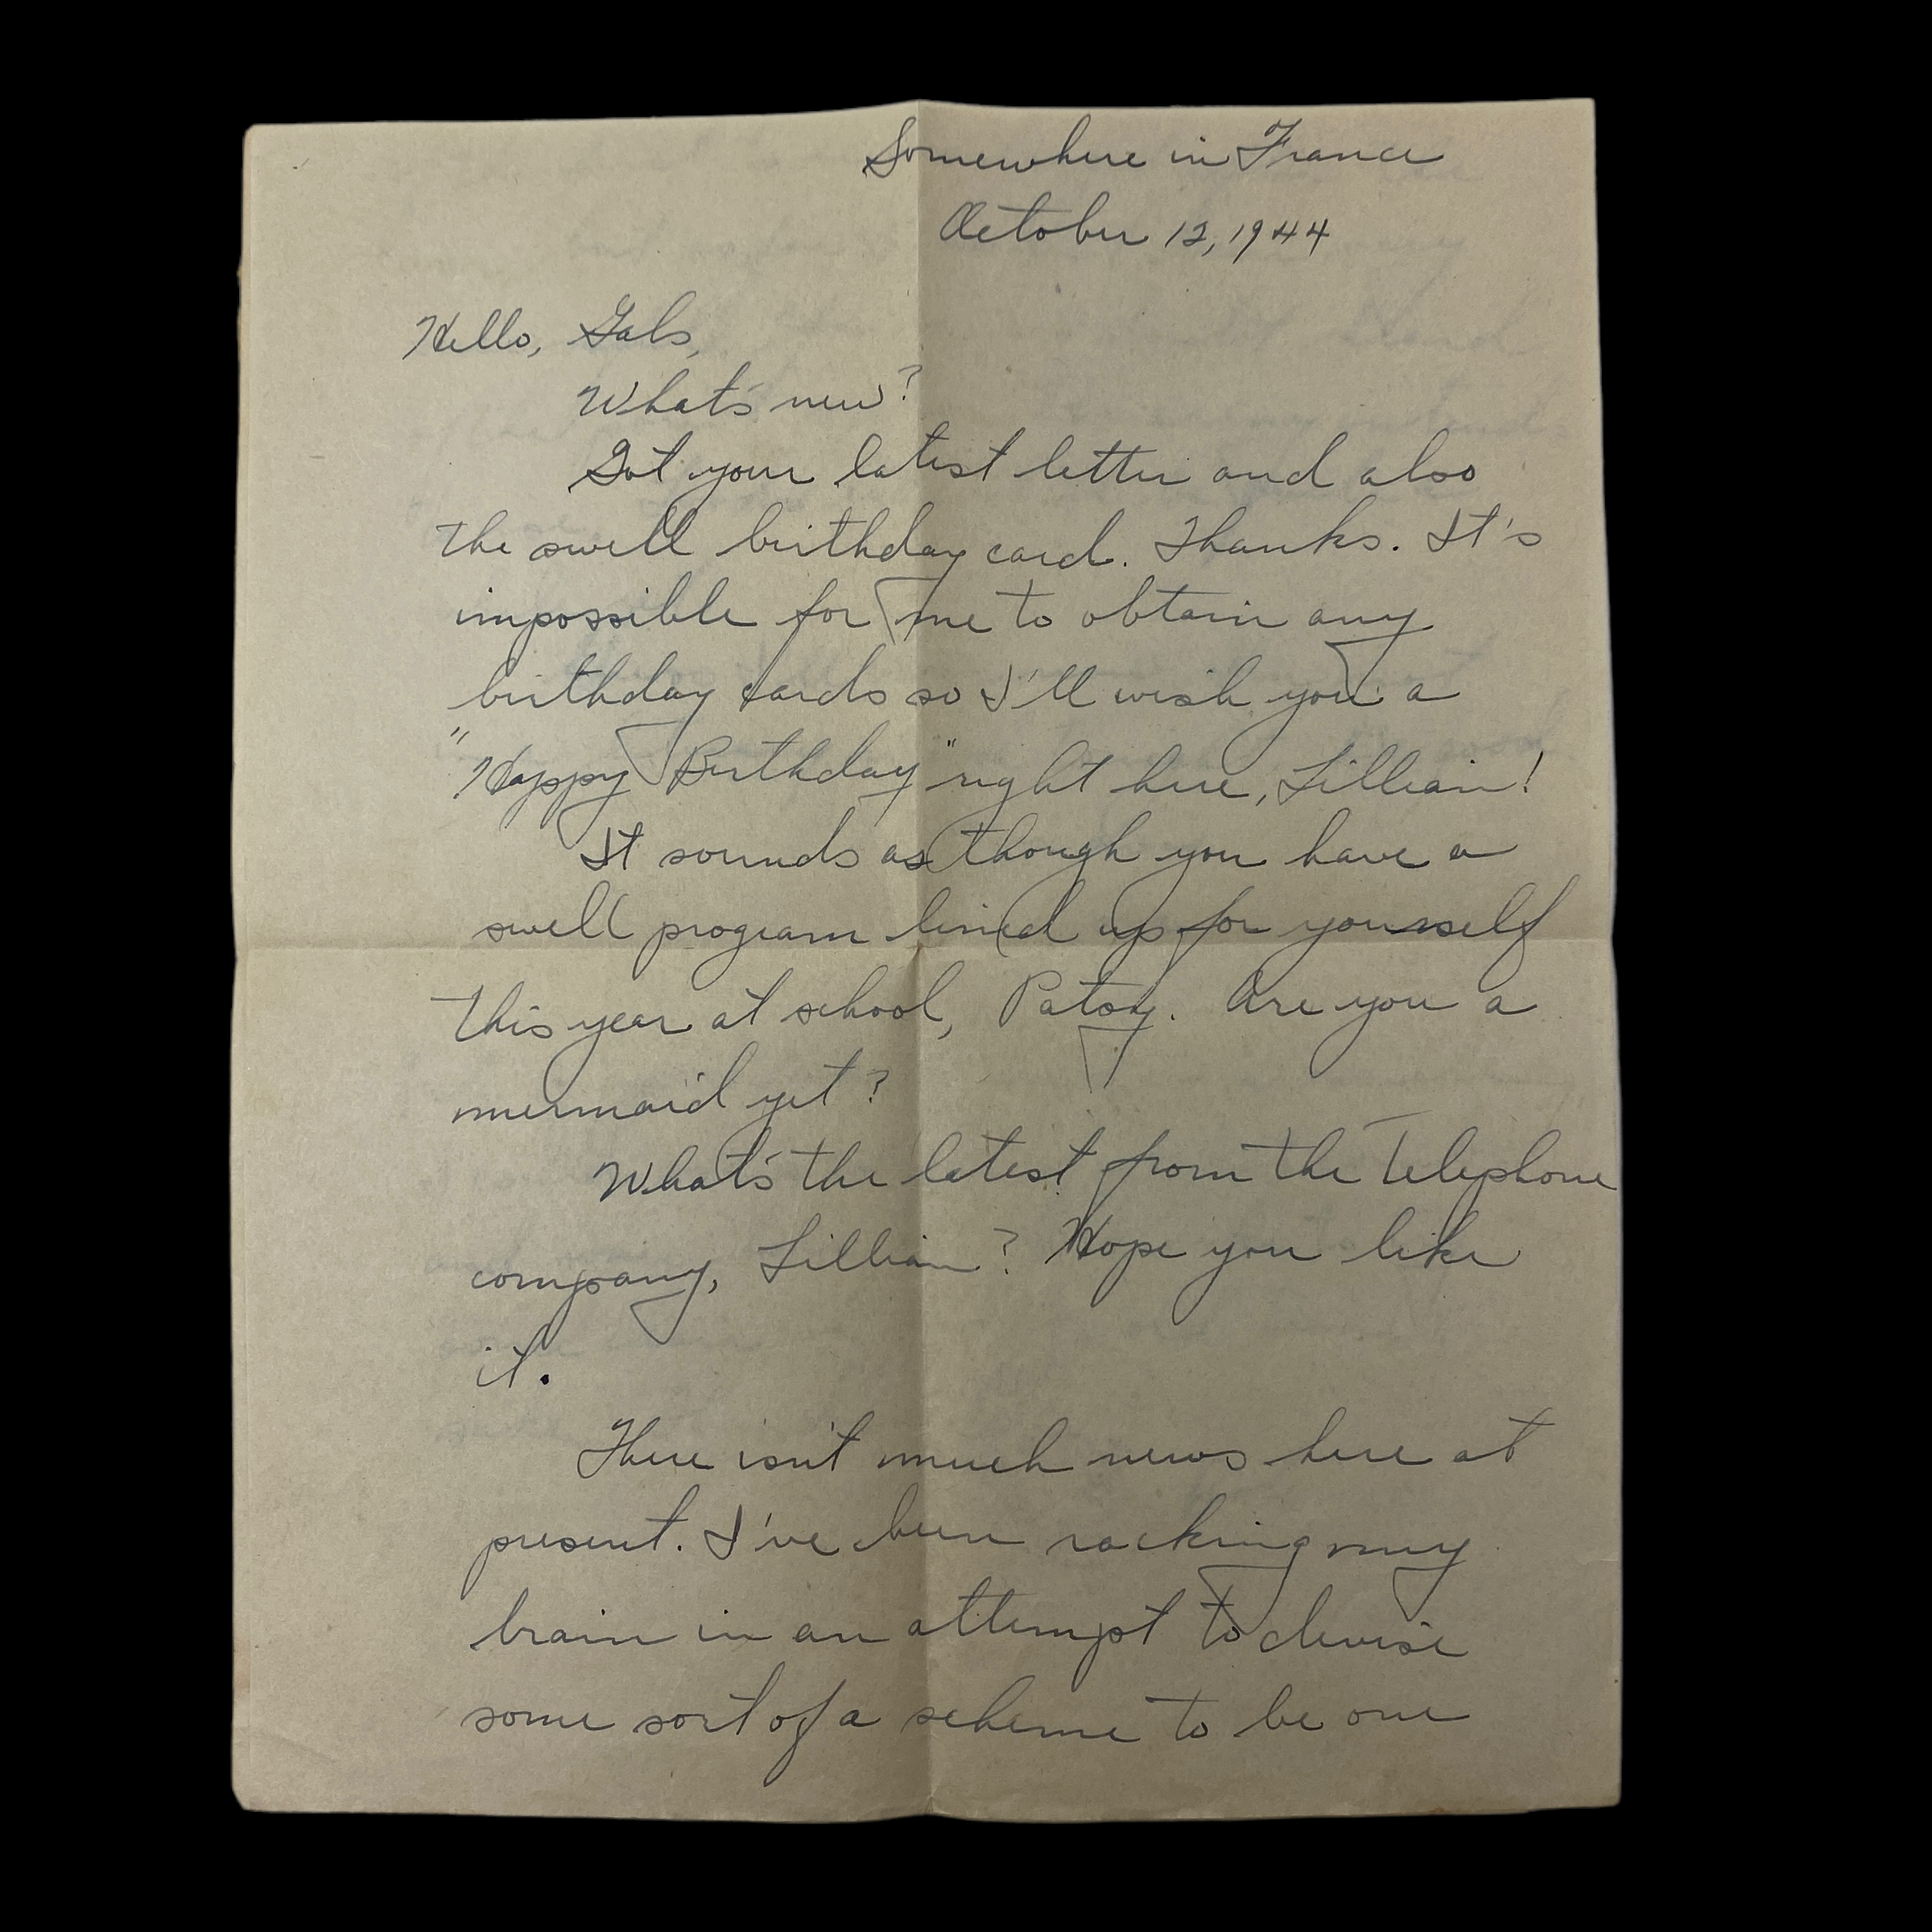 Somewhere in France
October 12, 1944
Hello, Gals,
What's new?
Got your latest letter and also
the swell birthday card. Thanks. It's
impossible for me to obtain any
birthday cards so I'll wish you a
"Happy Birthday" right here, Lillian!
It sounds as though you have a
swell program lined up for yourself
this year at school, Patsy. Are you a
mermaid yet?
What's the latest from the Telephone
company, Lillian? Hope you like
it.
There isn't much news here at
present. I've been racking my
brain in an attempt to devise
some sort of a scheme to be one